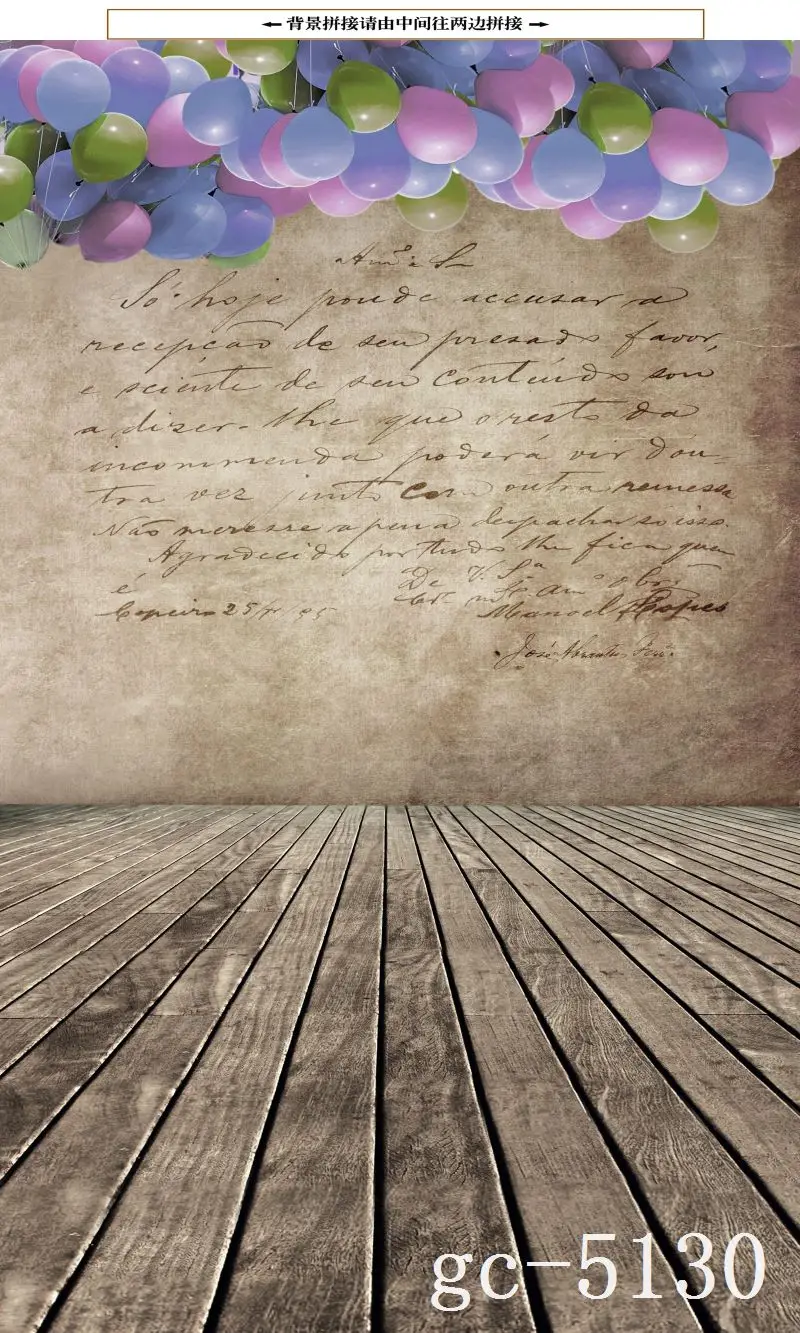 ← 背景拼接请由中间往两边拼接 →
Amº e Sr
Só hoje poude accusar a
recepção de seu presado favor,
e sciente de seu contiudo sou
a dizer-lhe que o resto da
incommenda poderá vir dou-
tra vez junto com outra remessa
Não meresse a pena despachar so isso.
Agradecido por tudo lhe fica quem
é De V. Sª
Amº obrº
25
Manoel Lopes
José
gc-5130